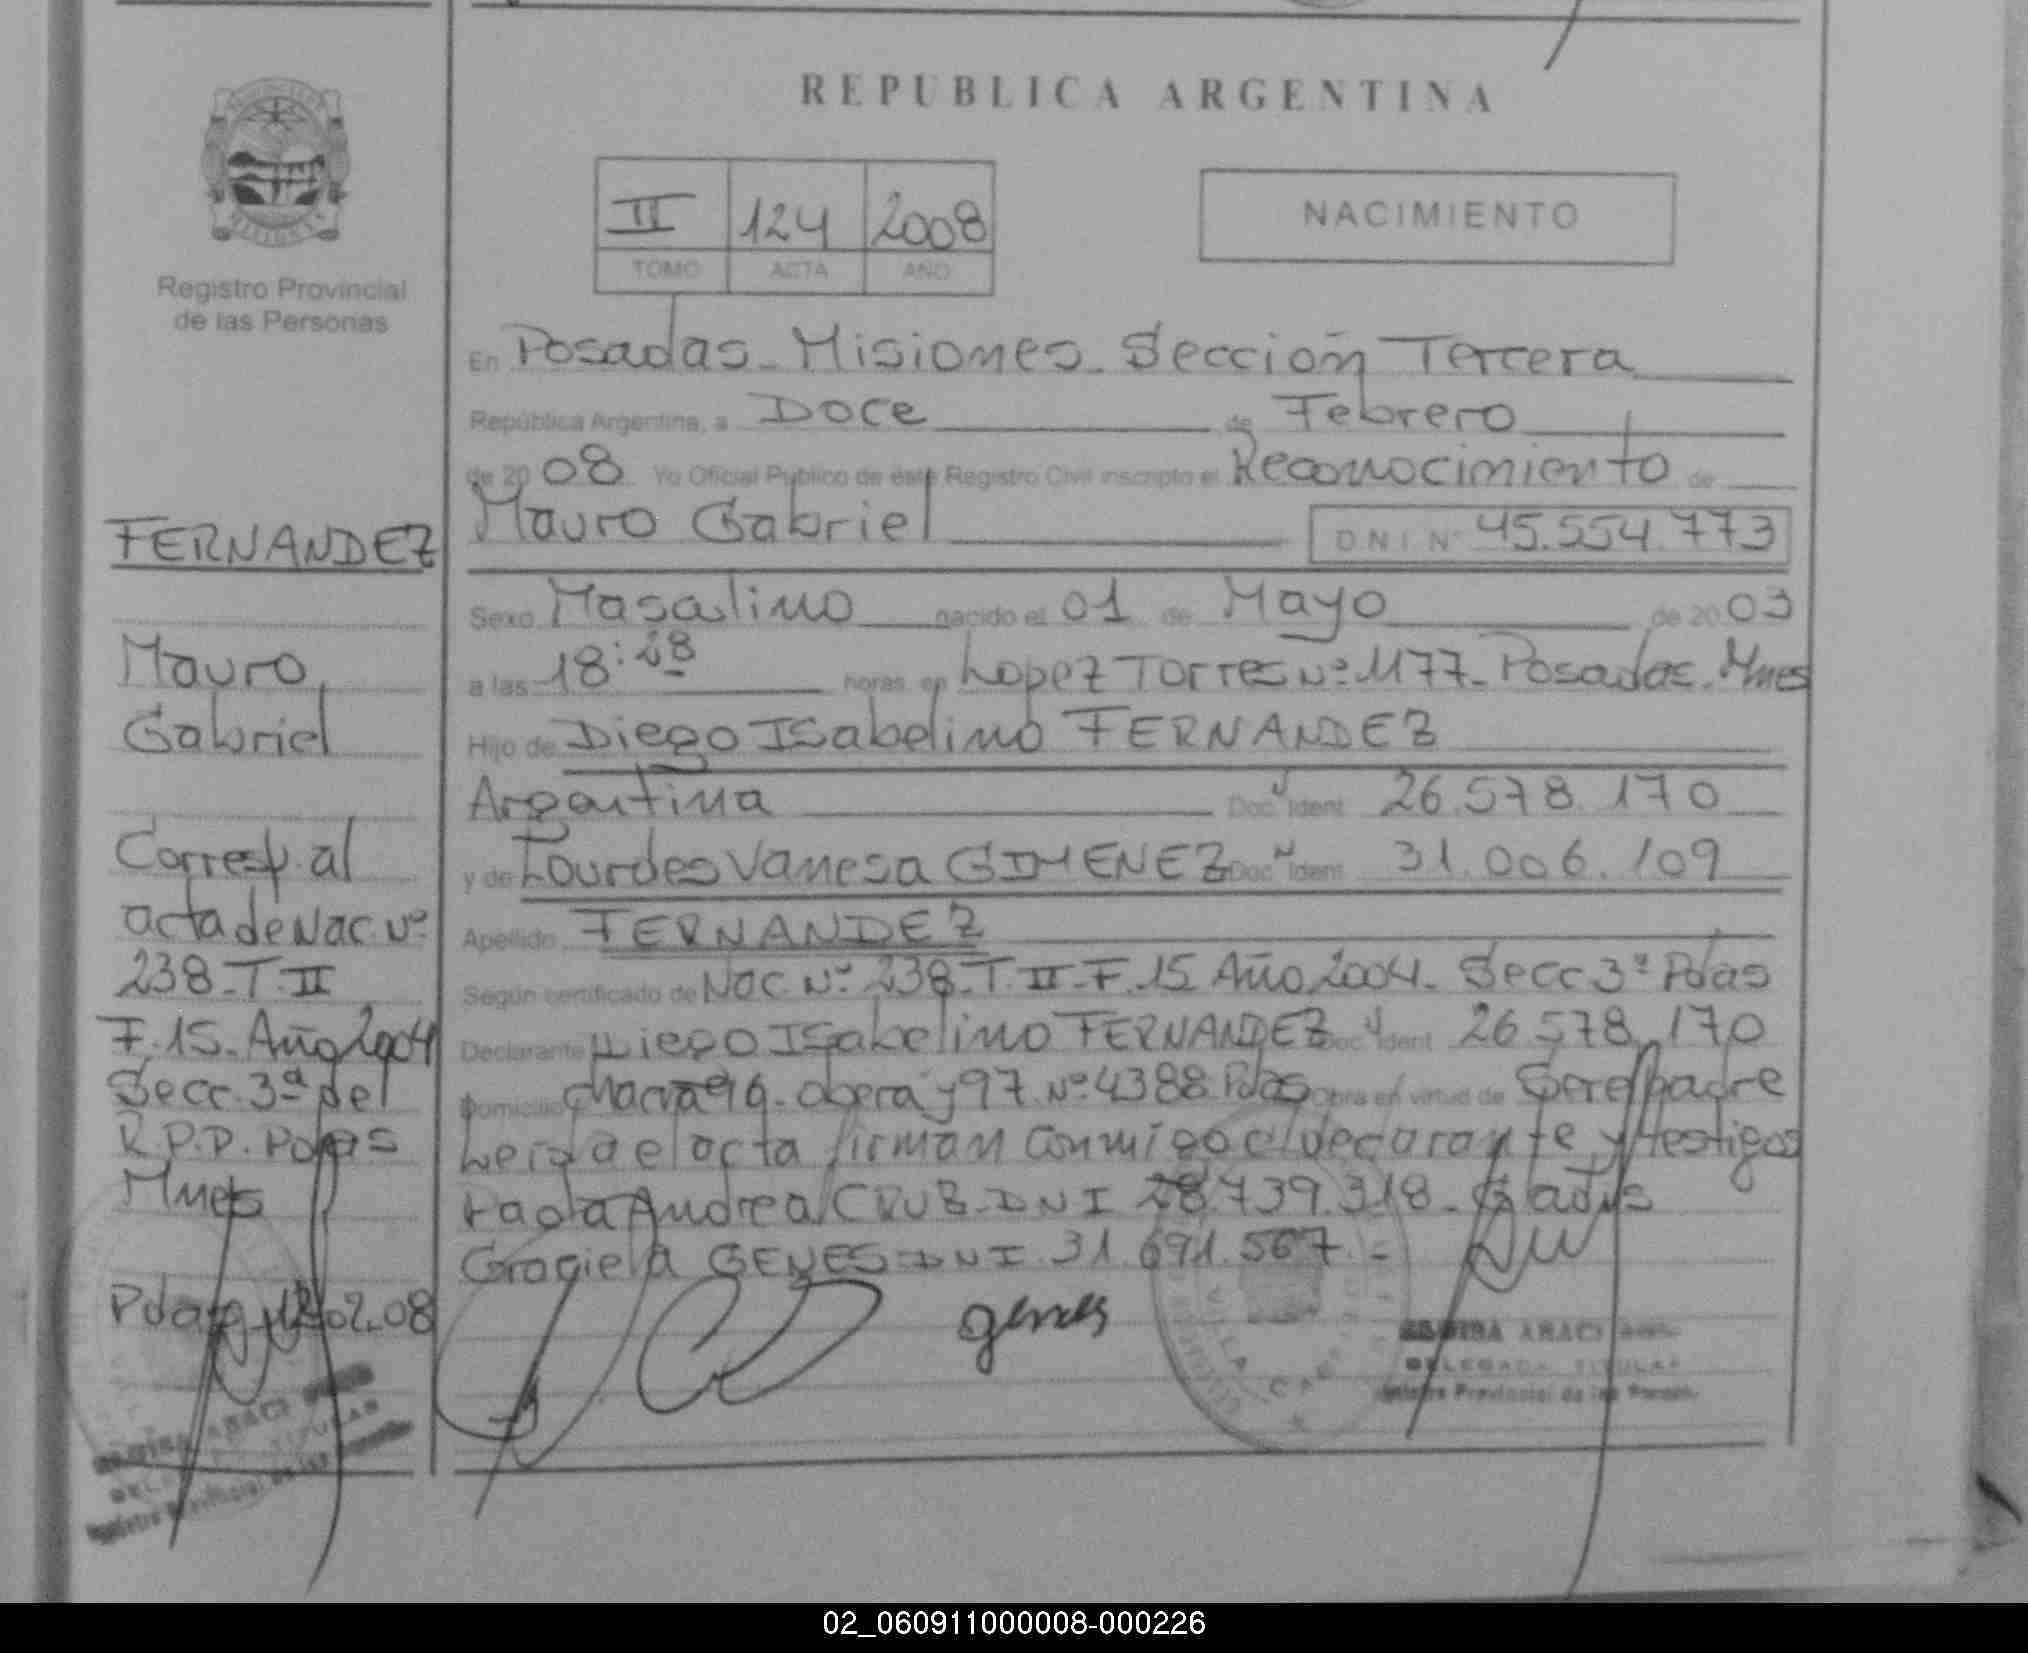 REPUBLICA ARGENTINA
II 124 2008
TOMO ACTA AÑO
NACIMIENTO
Registro Provincial
de las Personas
En Posadas - Misiones - Sección Tercera
República Argentina, a Doce de Febrero
de 20 08 Yo Oficial Público de éste Registro Civil inscripto el Reconocimiento de
Mauro Gabriel DNI Nº 45.554.773
Sexo Masculino nacido el 01 de Mayo de 20 03
a las 18:28 horas en Lopez Torres Nº 1177 - Posadas - Mnes
Hijo de Diego Isabelino FERNANDEZ
Argentina Doc Ident 26.578.170
y de Lourdes Vanesa GIMENEZ Doc Ident 31.006.109
Apellido FERNANDEZ
Según certificado de Nac. Nº 238 - T. II - F. 15 Año 2004 - Secc 3ª Pdas
Declarante Diego Isabelino FERNANDEZ Doc Ident 26.578.170
Domicilio chacra 96 - obera y 97 Nº 4388 Pdas Obra en virtud de Ser el padre
Leida el acta firman conmigo el declarante y testigos
Paola Andrea CRUZ - DNI 28.739.318 - Gladis
Graciela GENES - DNI 31.691.567 -
genes
ARACI
DELEGADA TITULAR
Registro Provincial de las Person.
FERNANDEZ
Mauro
Gabriel
Corresp. al
acta de Nac. Nº
238 - T. II
F. 15 - Año 2004
Secc. 3ª del
R.P.P. Pdas
Mnes
Pdas 12-02-08
ARACI
TITULAR
02_060911000008-000226